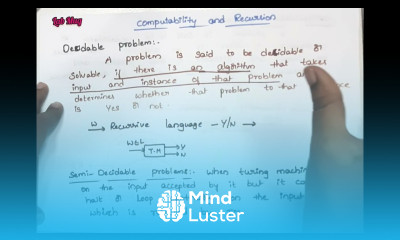 Lpt Vlog
Computability and Recursion
Decidable problem:-
A problem is said to be decidable or
Solvable, if there is an algorithm that takes
input and instance of that problem
determines whether that problem to that
is Yes or not.
W → Recursive language - Y/N →
WEL → T.M → Y
N
Semi-Decidable problems:- when turing machin
on the input accepted by it but it ca
halt or loop on the input
which is
Mind
Luster